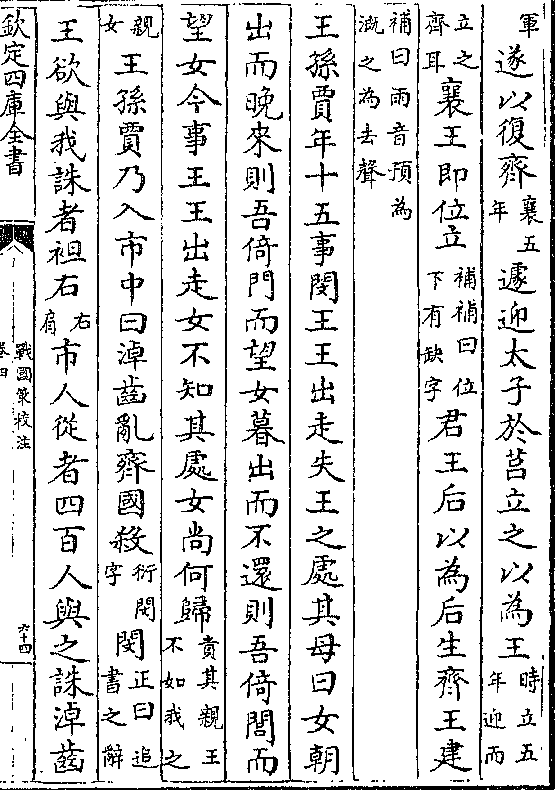 軍遂以復齊襄五年遽迎太子於莒立之以為王時立五年迎而
立之齊耳襄王即位立補補曰位下有缺字君王后以為后生齊王建
補曰雨音預為溉之為去聲
王孫賈年十五事閔王王出走失王之處其母曰女朝
出而晚來則吾倚門而望女暮出而不還則吾倚閭而
望女今事王王出走女不知其處女尚何歸責其親王不如我之
親女王孫賈乃入市中曰淖齒亂齊國殺衍閔字閔正曰追書之辭
王欲與我誅者袒右右肩市人從者四百人與之誅淖齒
欽定四庫全書
戰國策校注
卷四
六十四